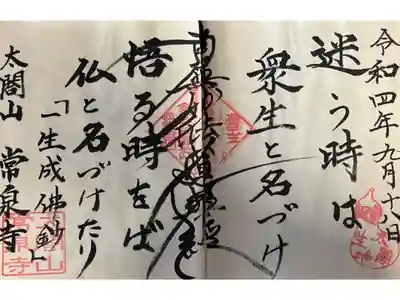 令和四年九月十八日
迷う時は
衆生と名づけ
南無妙法蓮華経
悟る時をば
仏と名づけたり
「一生成佛鈔」
太閤山 常泉寺
太閤山
常泉寺